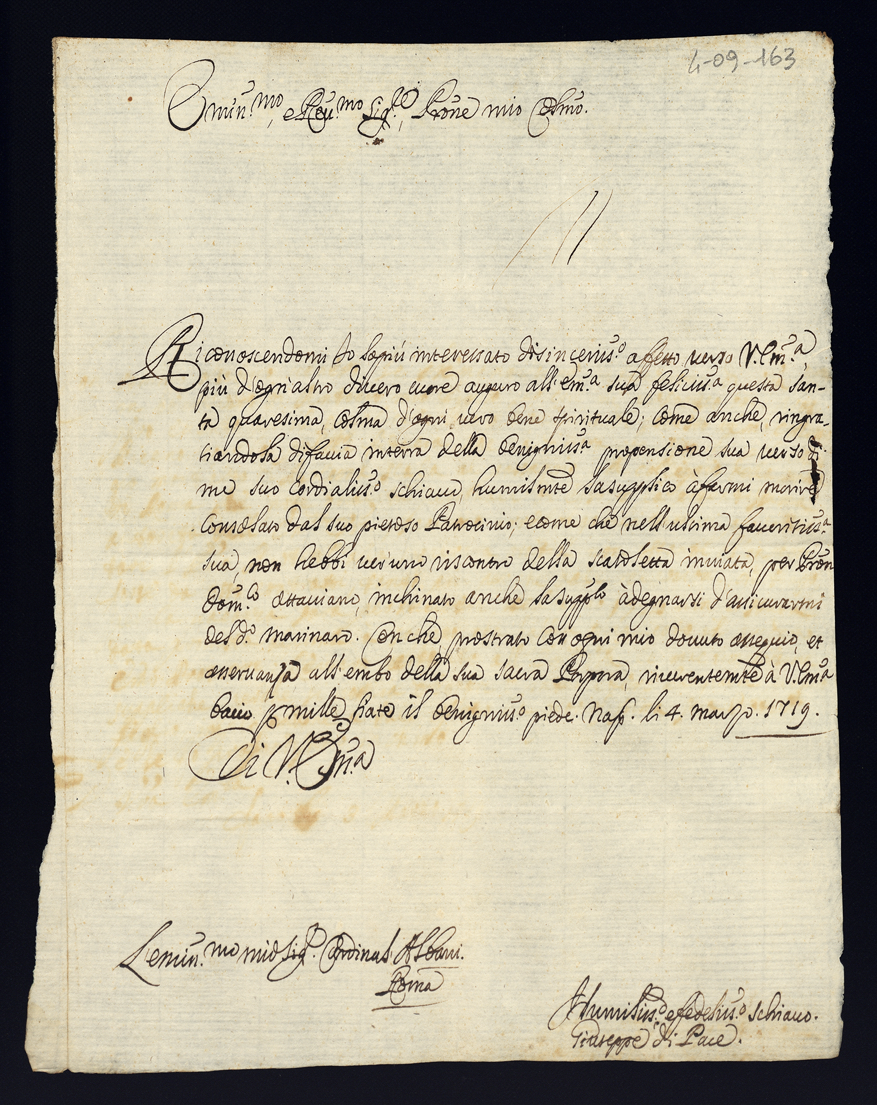 4-09-163
Emin.mo, e Reu.mo Sig.re, Prōne mio Colmo.
Riconoscendomi Io lo più interessato di sincerius.o affetto verso V.Em.a,
più d'ogn'altro di vero cuore auguro all'em.a sua felicius.a questa San-
ta quaresima, colma d'ogni vero bene spirituale; come anche, ringra-
tiandola di faccia in terra della benignius.a propensione sua verso di
me suo cordialius.o schiavo, humilmte la supplico à farmi morire
consolato dal suo pietoso Patrocinio; e come che nell'ultima favoritius.a
sua, non hebbi veruno riscontro della scatoletta inviata, per Prōn
Dom.co Ottaviano, inchinato anche la suppl.co à degnarsi d'assicurarmi
del d.o marinaro. Con che, prostrato con ogni mio dovuto ossequio, et
osservanza all'embo della sua sacra Porpora, riverentemte à V.Em.a
bacio p mille fiate il benignius.o piede. Nap. li 4. marzo. 1719.
Di V. Em.a
L'emin.mo mio Sig.re Cardinal Albani.
Roma
Humilius.o e fedelius.o schiavo.
Giuseppe di Pace.